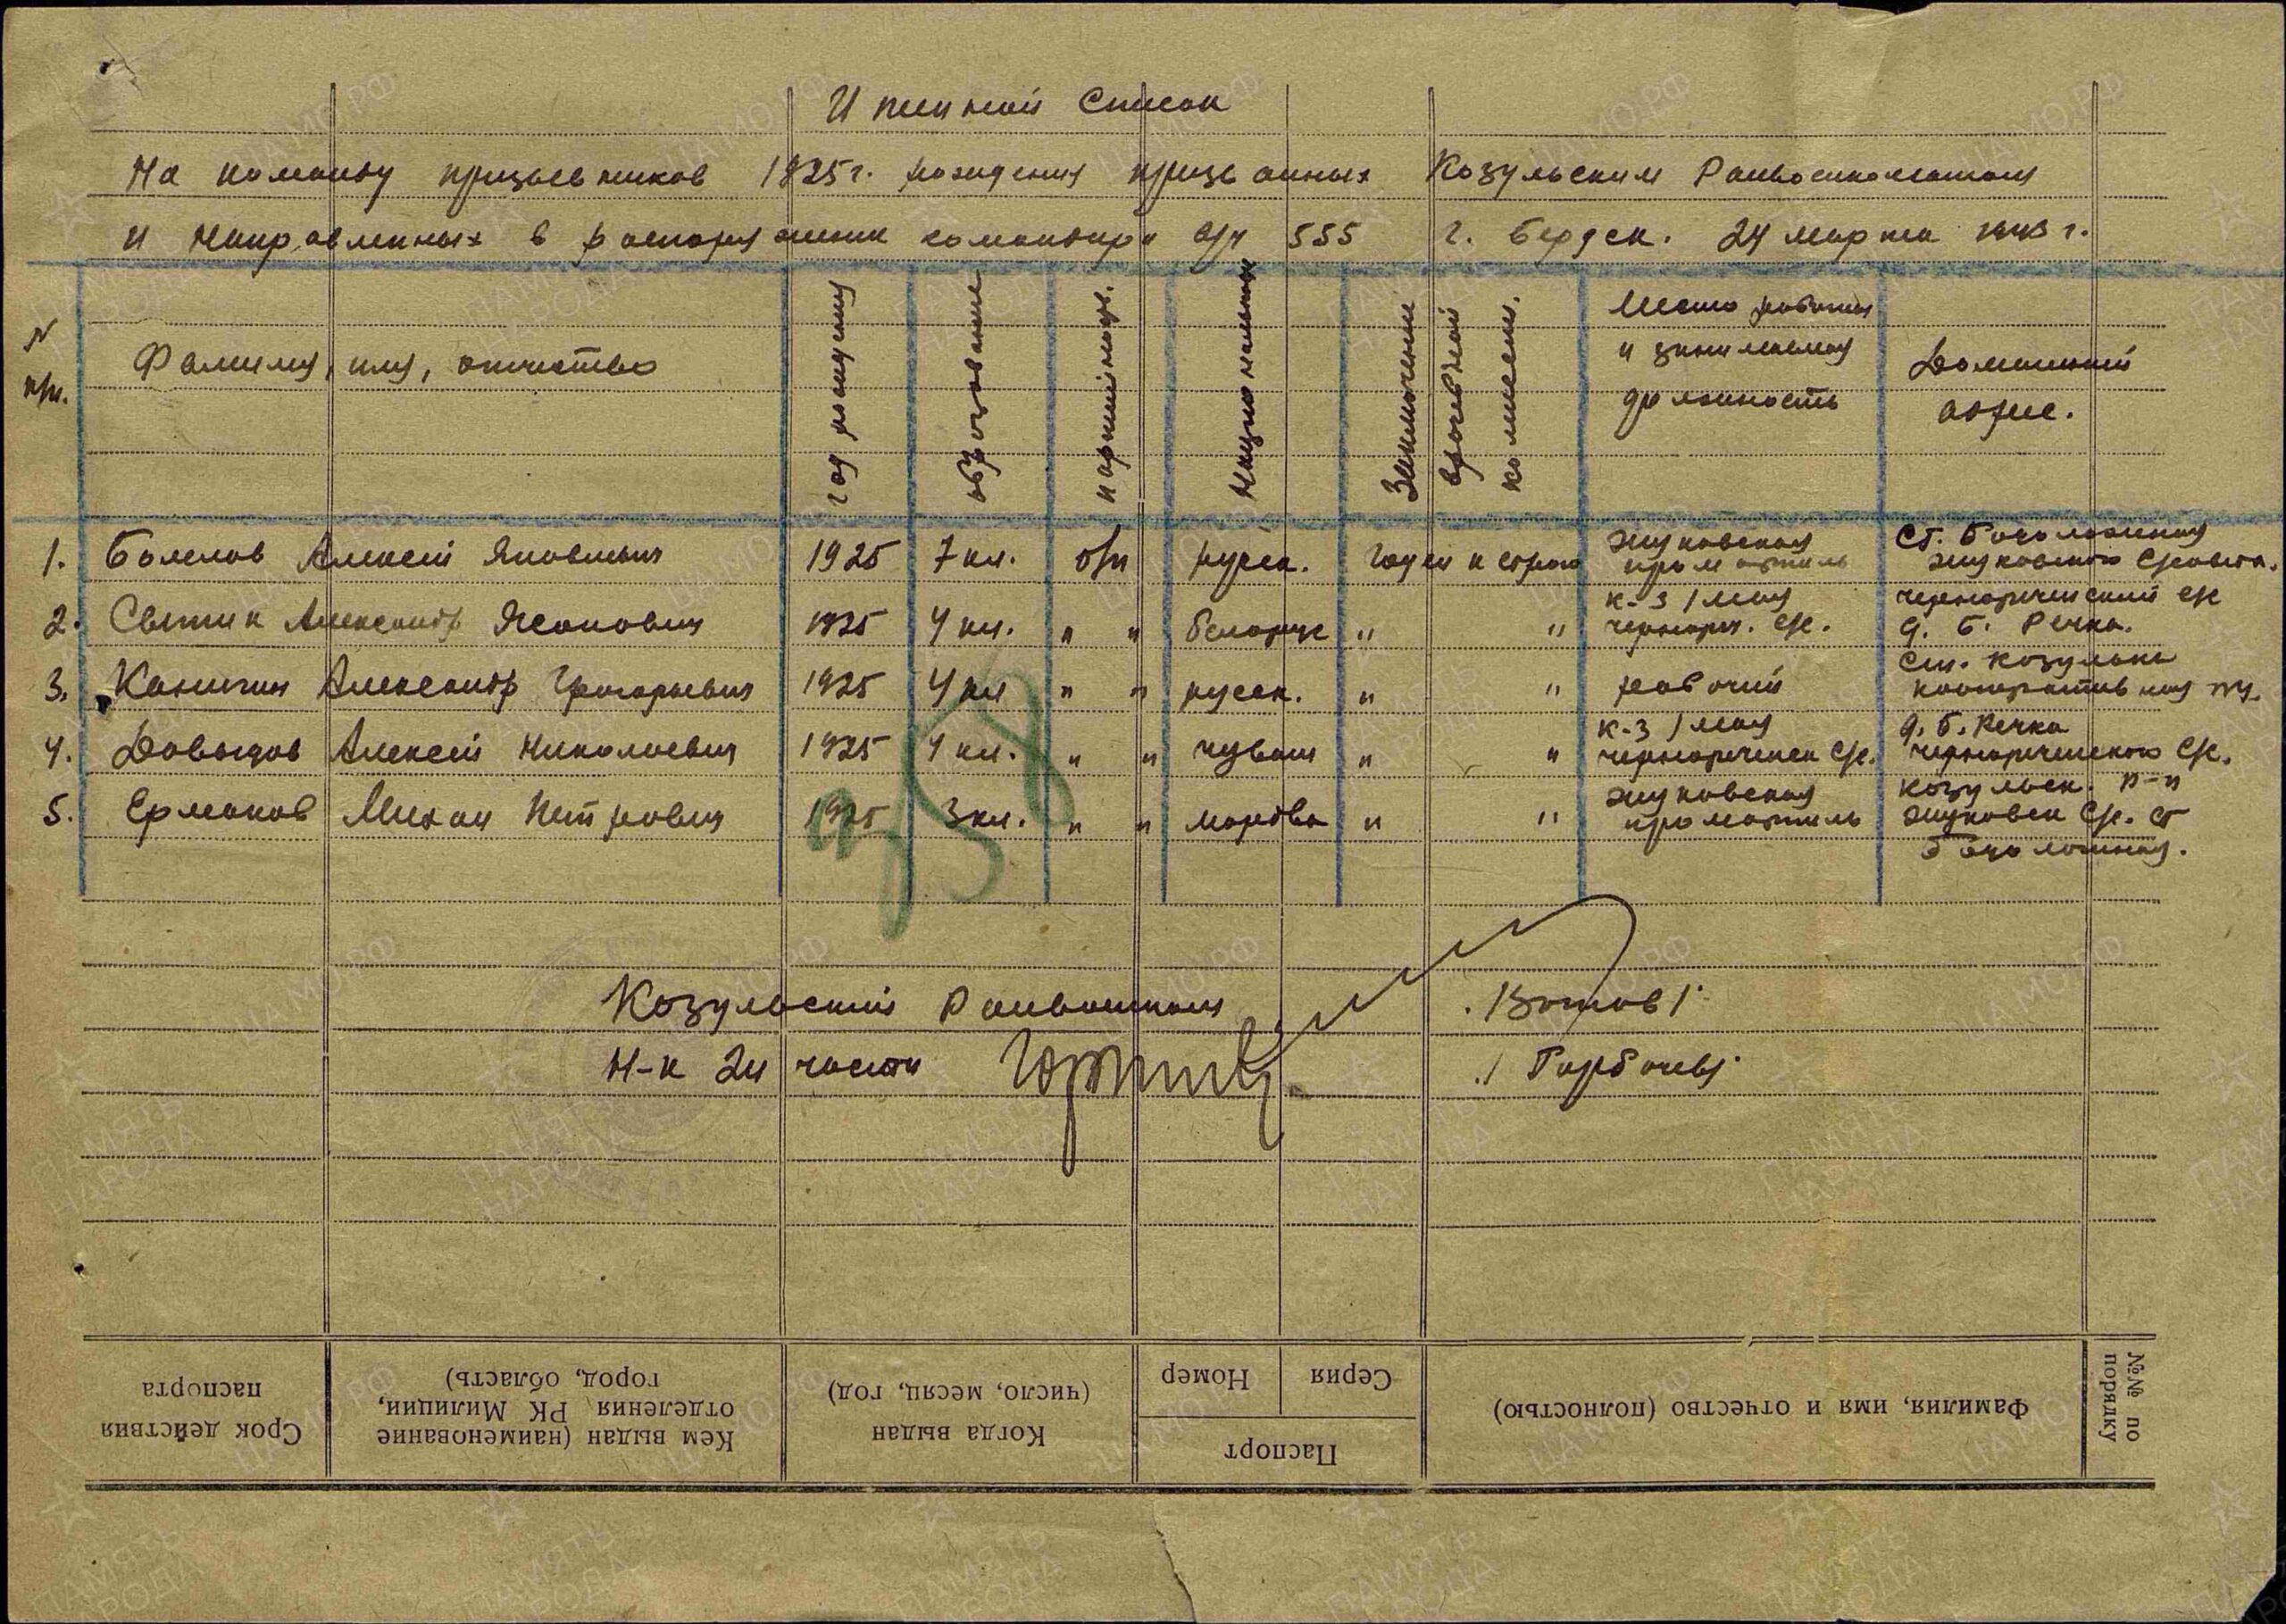 Именной Список
На команду призывников 1925 г. рождения призванных Козульским Райвоенкоматом
и направленных в распоряжение командира в/ч 555 г. Бердск. 24 марта 1943 г.
N п/п.
Фамилия, имя, отчество
год рождения
образование
партийность.
Национальность
Заключение врачебной комиссии.
Место работы и занимаемая должность
Домашний адрес.
1. Болелов Алексей Яковлевич 1925 7 кл. б/п русск. Годен к строю Жуковская промартель ст. Боголюбская Жуковского с/совета.
2. Александр 1925 4 кл. " " белорус " " к-з 1 мая чернореч. с/с. чернореченский с/с д. Б. Речка.
3. Каничин Александр Григорьевич 1925 4 кл " " русск. " " рабочий ст. Козулька кооперативная
4. Давыдов Алексей Николаевич 1925 4 кл. " " чуваш " " к-з 1 мая чернореченск с/с. д. Б. Речка чернореченского с/с.
5. Ермаков Михаил Петрович 1925 3 кл. " " мордва " " Жуковская промартель Козульск. р-н Жуковск с/с. ст
358
Козульский Райвоенком /Зотов/
Н-к 2й части /Горбачев/
№№ по порядку
Фамилия, имя и отчество (полностью)
Паспорт
Серия
Номер
Когда выдан (число, месяц, год)
Кем выдан (наименование отделения РК Милиции, город, область)
Срок действия паспорта
ПАМЯТЬ НАРОДА
ЦАМО.РФ